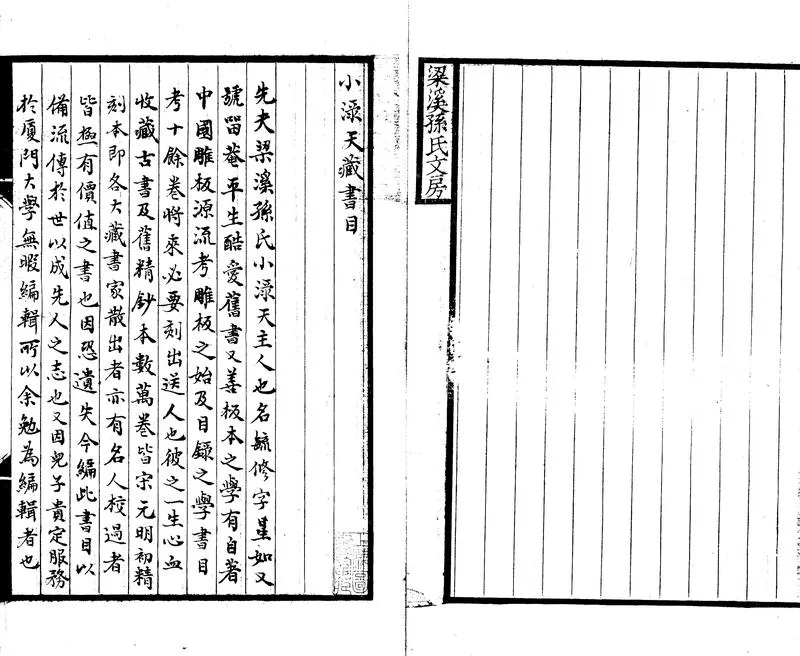 梁溪孫氏文房
小淥天藏書目
先夫梁溪孫氏小淥天主人也名毓修字星如又
號留菴平生酷愛舊書又善板本之學有自著
中國雕板源流考雕板之始及目錄之學書目
考十餘卷將來必要刻出送人也彼之一生心血
收藏古書及舊精鈔本數萬卷皆宋元明初精
刻本即各大藏書家散出者亦有名人校過者
皆極有價值之書也因恐遺失今編此書目以
備流傳於世以成先人之志也又因兒子貴定服務
於廈門大學無暇編輯所以余勉為編輯者也